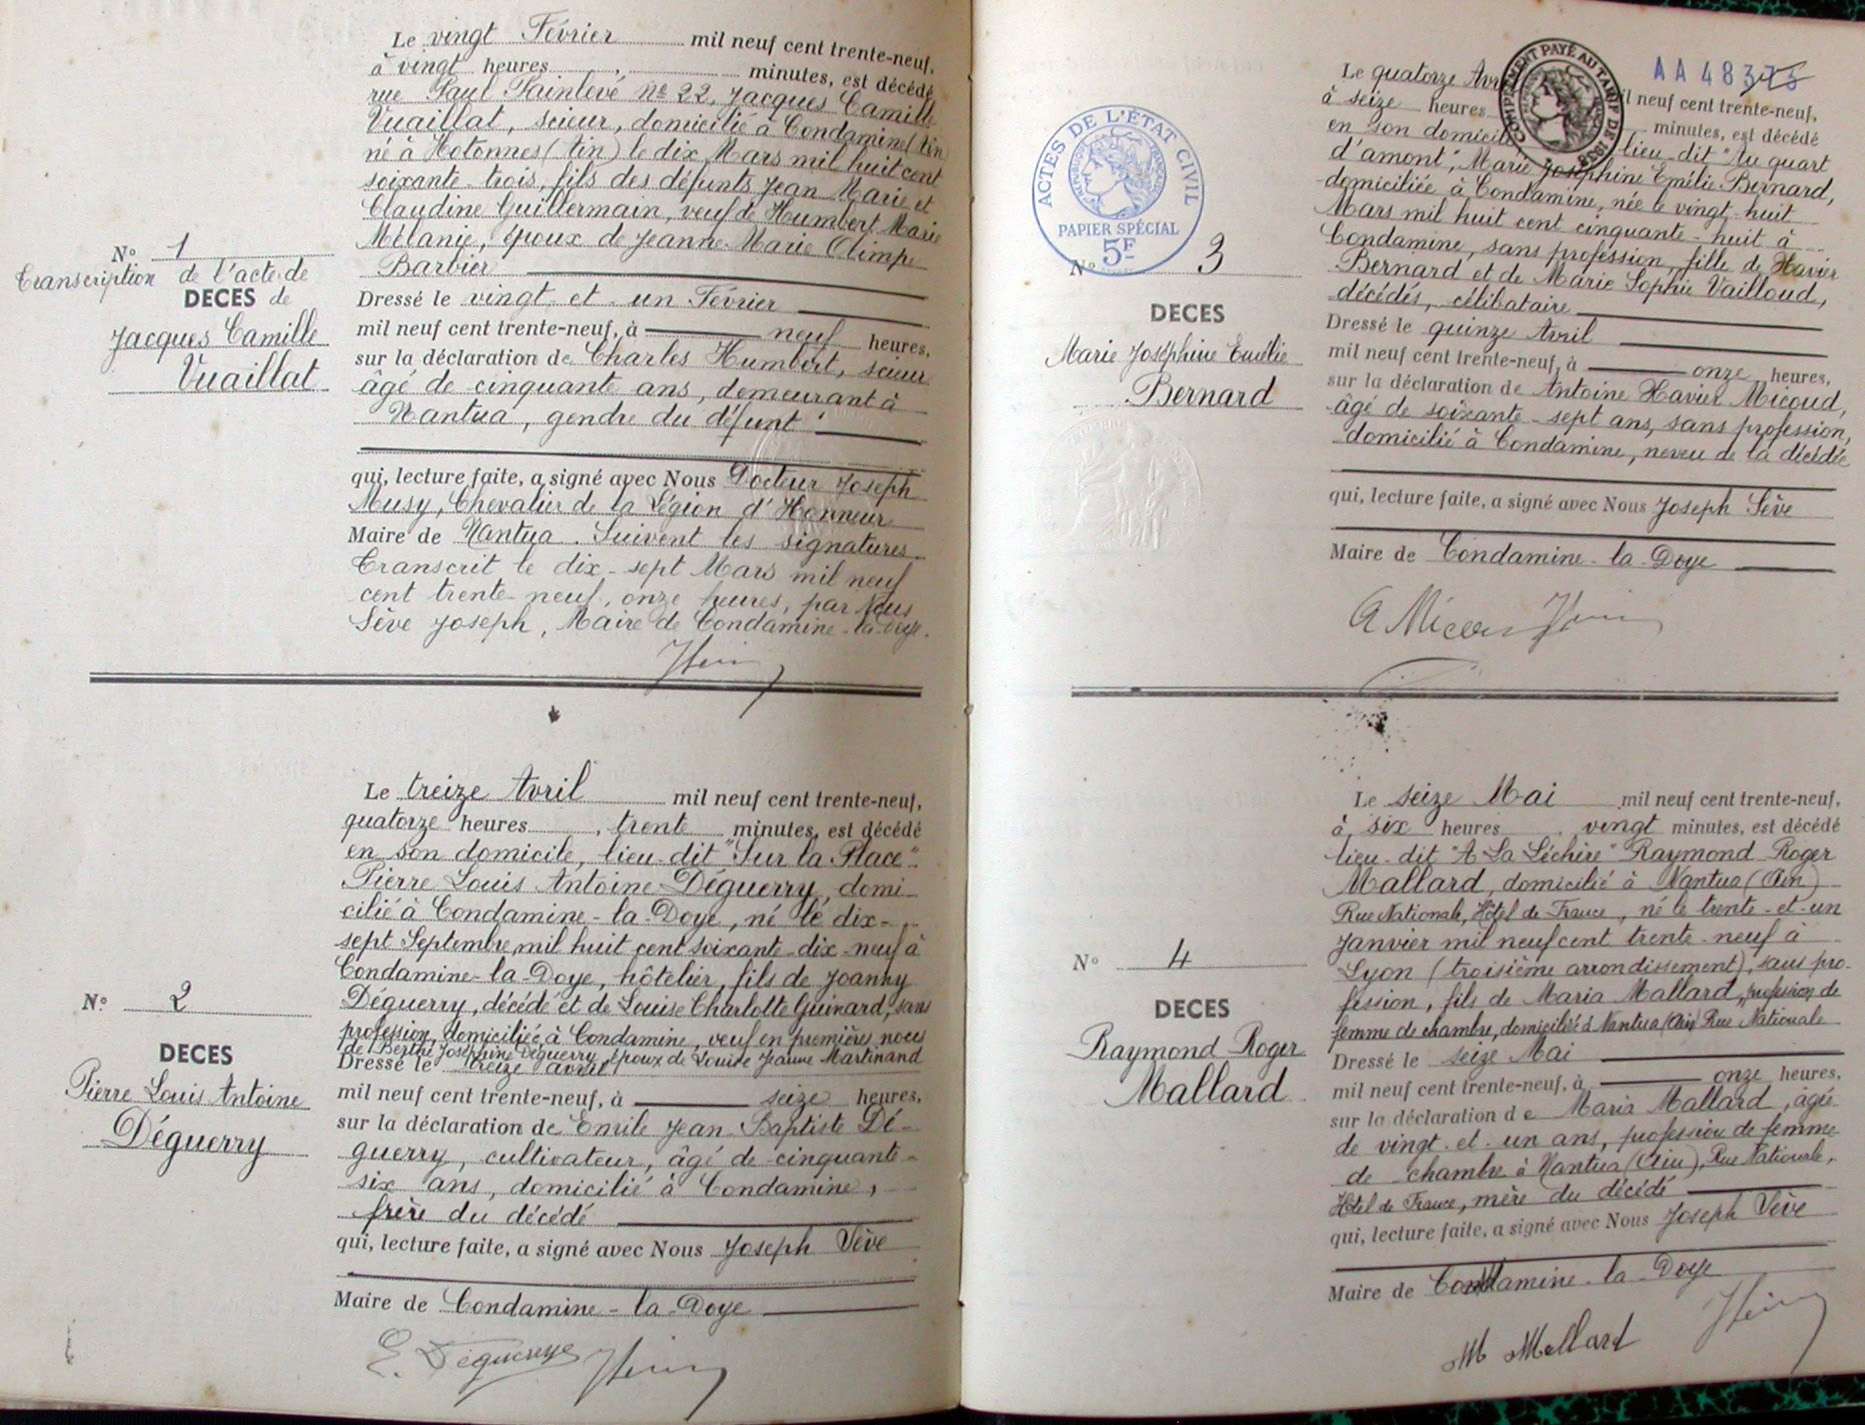 Le vingt Février mil neuf cent trente-neuf,
à vingt heures, minutes, est décédé
rue Paul Painlevé n° 22, Jacques Camille
Vuaillat, scieur, domicilié à Condamine (Ain)
né à Hotonnes (Ain) le dix Mars mil huit cent
soixante-trois, fils des défunts Jean Marie et
Claudine Guillermain, veuf de Humbert Marie
Mélanie, époux de Jeanne Marie Olimpe
Barbier
N° 1
Transcription de l'acte de
DECES de
Jacques Camille
Vuaillat
Dressé le vingt et un Février
mil neuf cent trente-neuf, à neuf heures,
sur la déclaration de Charles Humbert, scieur
âgé de cinquante ans, demeurant à
Nantua, gendre du défunt
qui, lecture faite, a signé avec Nous Docteur Joseph
Musy, Chevalier de la Légion d'Honneur
Maire de Nantua. Suivent les signatures.
Transcrit le dix-sept Mars mil neuf
cent trente-neuf, onze heures, par Nous
Sève Joseph, Maire de Condamine-la-Doye.
Le treize Avril mil neuf cent trente-neuf,
quatorze heures, trente minutes, est décédé
en son domicile, lieu-dit "Sur la Place"
Pierre Louis Antoine Déguerry, domi-
cilié à Condamine-la-Doye, né le dix-
sept Septembre mil huit cent soixante-dix-neuf à
Condamine-la-Doye, hôtelier, fils de Joanny
Déguerry, décédé et de Louise Charlotte Guinard, sans
profession, domiciliée à Condamine, veuf en premières noces
de Berthe Joséphine Déguerry, époux de Louise Jeanne Martinand
N° 2
DECES
Pierre Louis Antoine
Déguerry
Dressé le treize avril
mil neuf cent trente-neuf, à seize heures,
sur la déclaration de Emile Jean-Baptiste Dé-
guerry, cultivateur, âgé de cinquante-
six ans, domicilié à Condamine,
frère du décédé
qui, lecture faite, a signé avec Nous Joseph Sève
Maire de Condamine-la-Doye
E. Déguerry
COMPLÉMENT PAYÉ AU TARIF DE
AA 48373
Le quatorze Avr il neuf cent trente-neuf,
à seize heures minutes, est décédé
en son domicile lieu-dit "Au quart
d'amont", Marie Joséphine Emélie Bernard,
domiciliée à Condamine, née le vingt-huit
Mars mil huit cent cinquante-huit à
Condamine, sans profession, fille de Xavier
Bernard et de Marie Sophie Vailloud,
décédés, célibataire
ACTES DE L'ÉTAT CIVIL
RÉPUBLIQUE FRANÇAISE
PAPIER SPÉCIAL
5F
N° 3
DECES
Marie Joséphine Emélie
Bernard
Dressé le quinze Avril
mil neuf cent trente-neuf, à onze heures,
sur la déclaration de Antoine Xavier Micoud,
âgé de soixante-sept ans, sans profession,
domicilié à Condamine, neveu de la décédée
qui, lecture faite, a signé avec Nous Joseph Sève
Maire de Condamine-la-Doye
Le seize Mai mil neuf cent trente-neuf,
à six heures vingt minutes, est décédé
lieu-dit "A La Léchère" Raymond Roger
Mallard, domicilié à Nantua (Ain)
Rue Nationale, Hôtel de France, né le trente-et-un
Janvier mil neuf cent trente-neuf à
Lyon (troisième arrondissement), sans pro-
fession, fils de Maria Mallard, profession de
femme de chambre, domiciliée à Nantua (Ain) Rue Nationale
N° 4
DECES
Raymond Roger
Mallard
Dressé le seize Mai
mil neuf cent trente-neuf, à onze heures,
sur la déclaration de Maria Mallard, âgée
de vingt-et-un ans, profession de femme
de chambre à Nantua (Ain), Rue Nationale,
Hôtel de France, mère du décédé
qui, lecture faite, a signé avec Nous Joseph Sève
Maire de Condamine-la-Doye
M Mallard